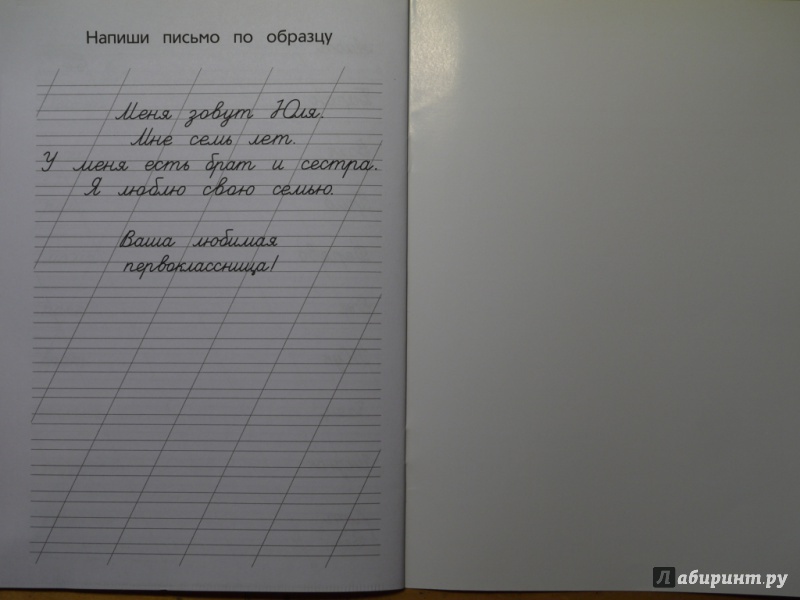 Напиши письмо по образцу
Меня зовут Юля.
Мне семь лет.
У меня есть брат и сестра.
Я люблю свою семью.
Ваша любимая
первоклассница!
Лабиринт.ру